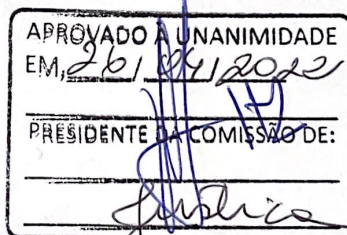 APROVADO À UNANIMIDADE
EM, 26/04/2022
PRESIDENTE DA COMISSÃO DE:
Justiça